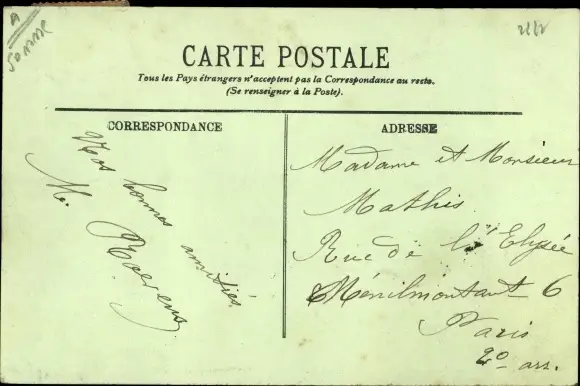 A
Somme
CARTE POSTALE
Tous les Pays étrangers n'acceptent pas la Correspondance au recto.
(Se renseigner à la Poste).
CORRESPONDANCE
Nos bonnes amitiés
M.
ADRESSE
Madame et Monsieur
Mathis
Rue de l'Elysée
Ménilmontant 6
Paris
20 arr.